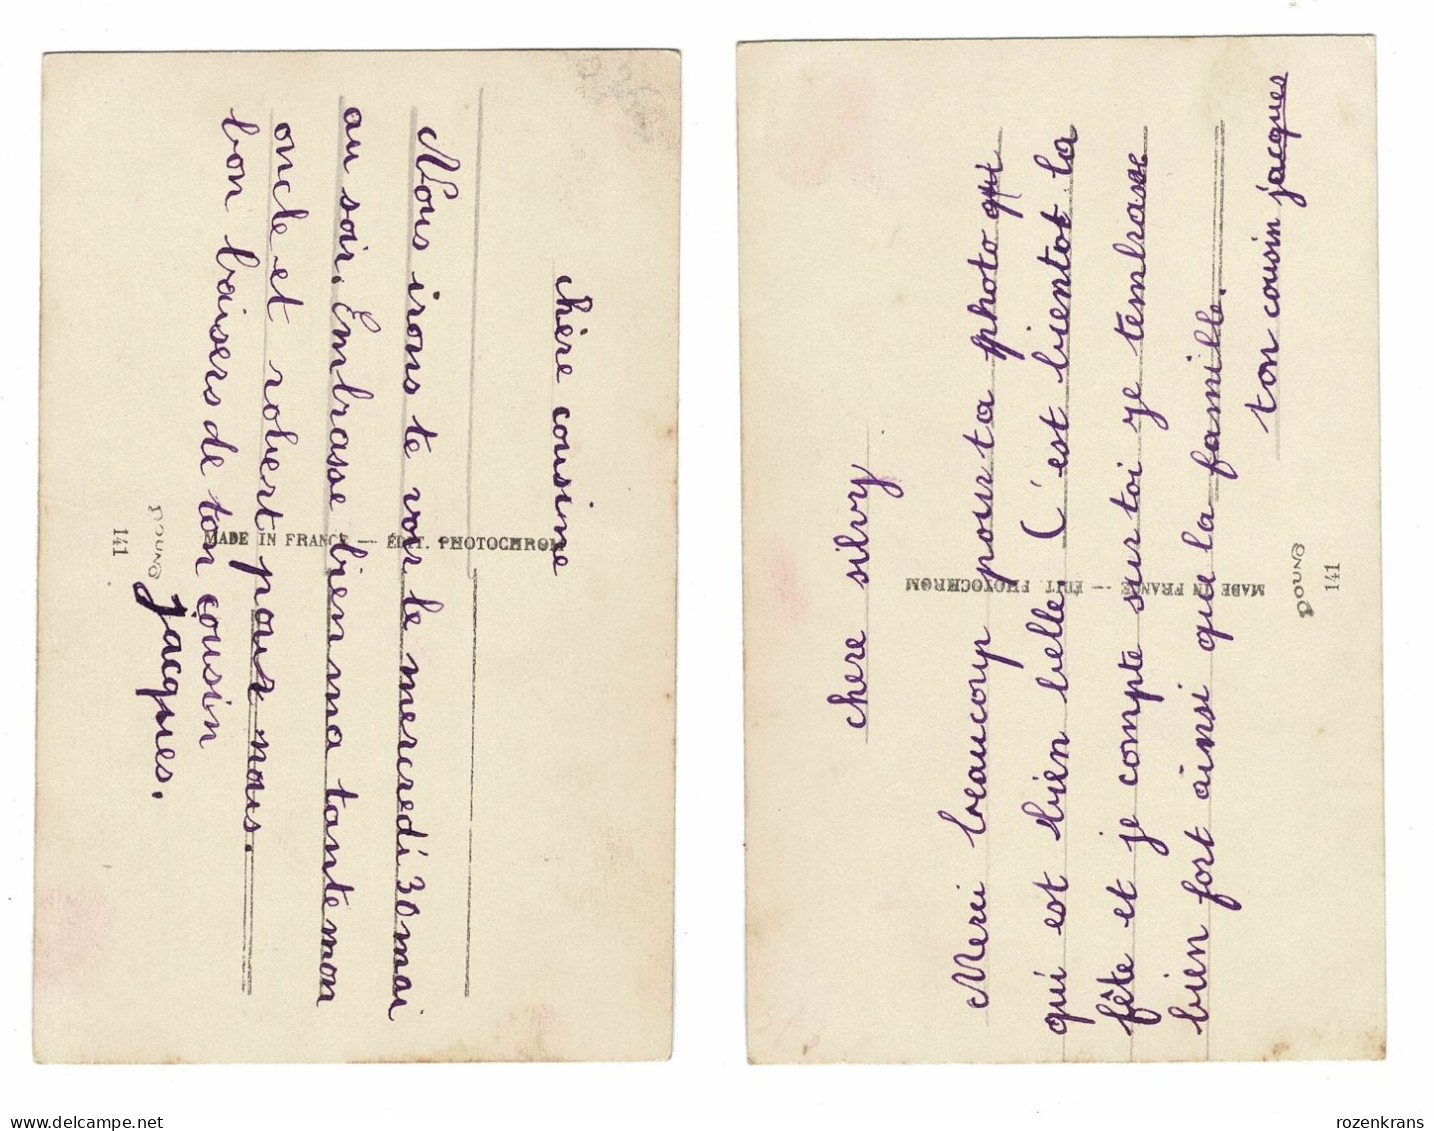 chère cousine
Nous irons te voir le mercredi 30 mai
au soir. Embrasse bien ma tante mon
oncle et robert pour nous.
bon baisers de ton cousin
Jacques.
MADE IN FRANCE — ÉDIT. PHOTOCHROM
141
chere silvy
Merci beaucoup pour ta photo qui
qui est bien belle C'est bientot la
fête et je compte sur toi je tembrasse
bien fort ainsi que la famille.
ton cousin jacques
MADE IN FRANCE — ÉDIT PHOTOCHROM
141
rozenkrans
www.delcampe.net